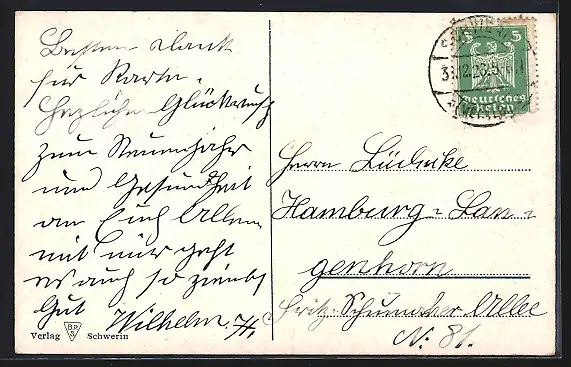 Besten Dank
für Karte.
Herzlichen Glückwusch
zum Neuenjahr
und Gesundheit
an Euch Allen
mit mir geht
es auch so ziemlich
Gut
Wilhelm. H.
Verlag B.D.S. Schwerin
5 5
Deutsches
Reich
SCHWERIN
31.12.26.5
(MECKLB)
Herrn Lüdecke
Hamburg-Lan-
genhorn
Fritz-Schumacher Allee
N: 81.